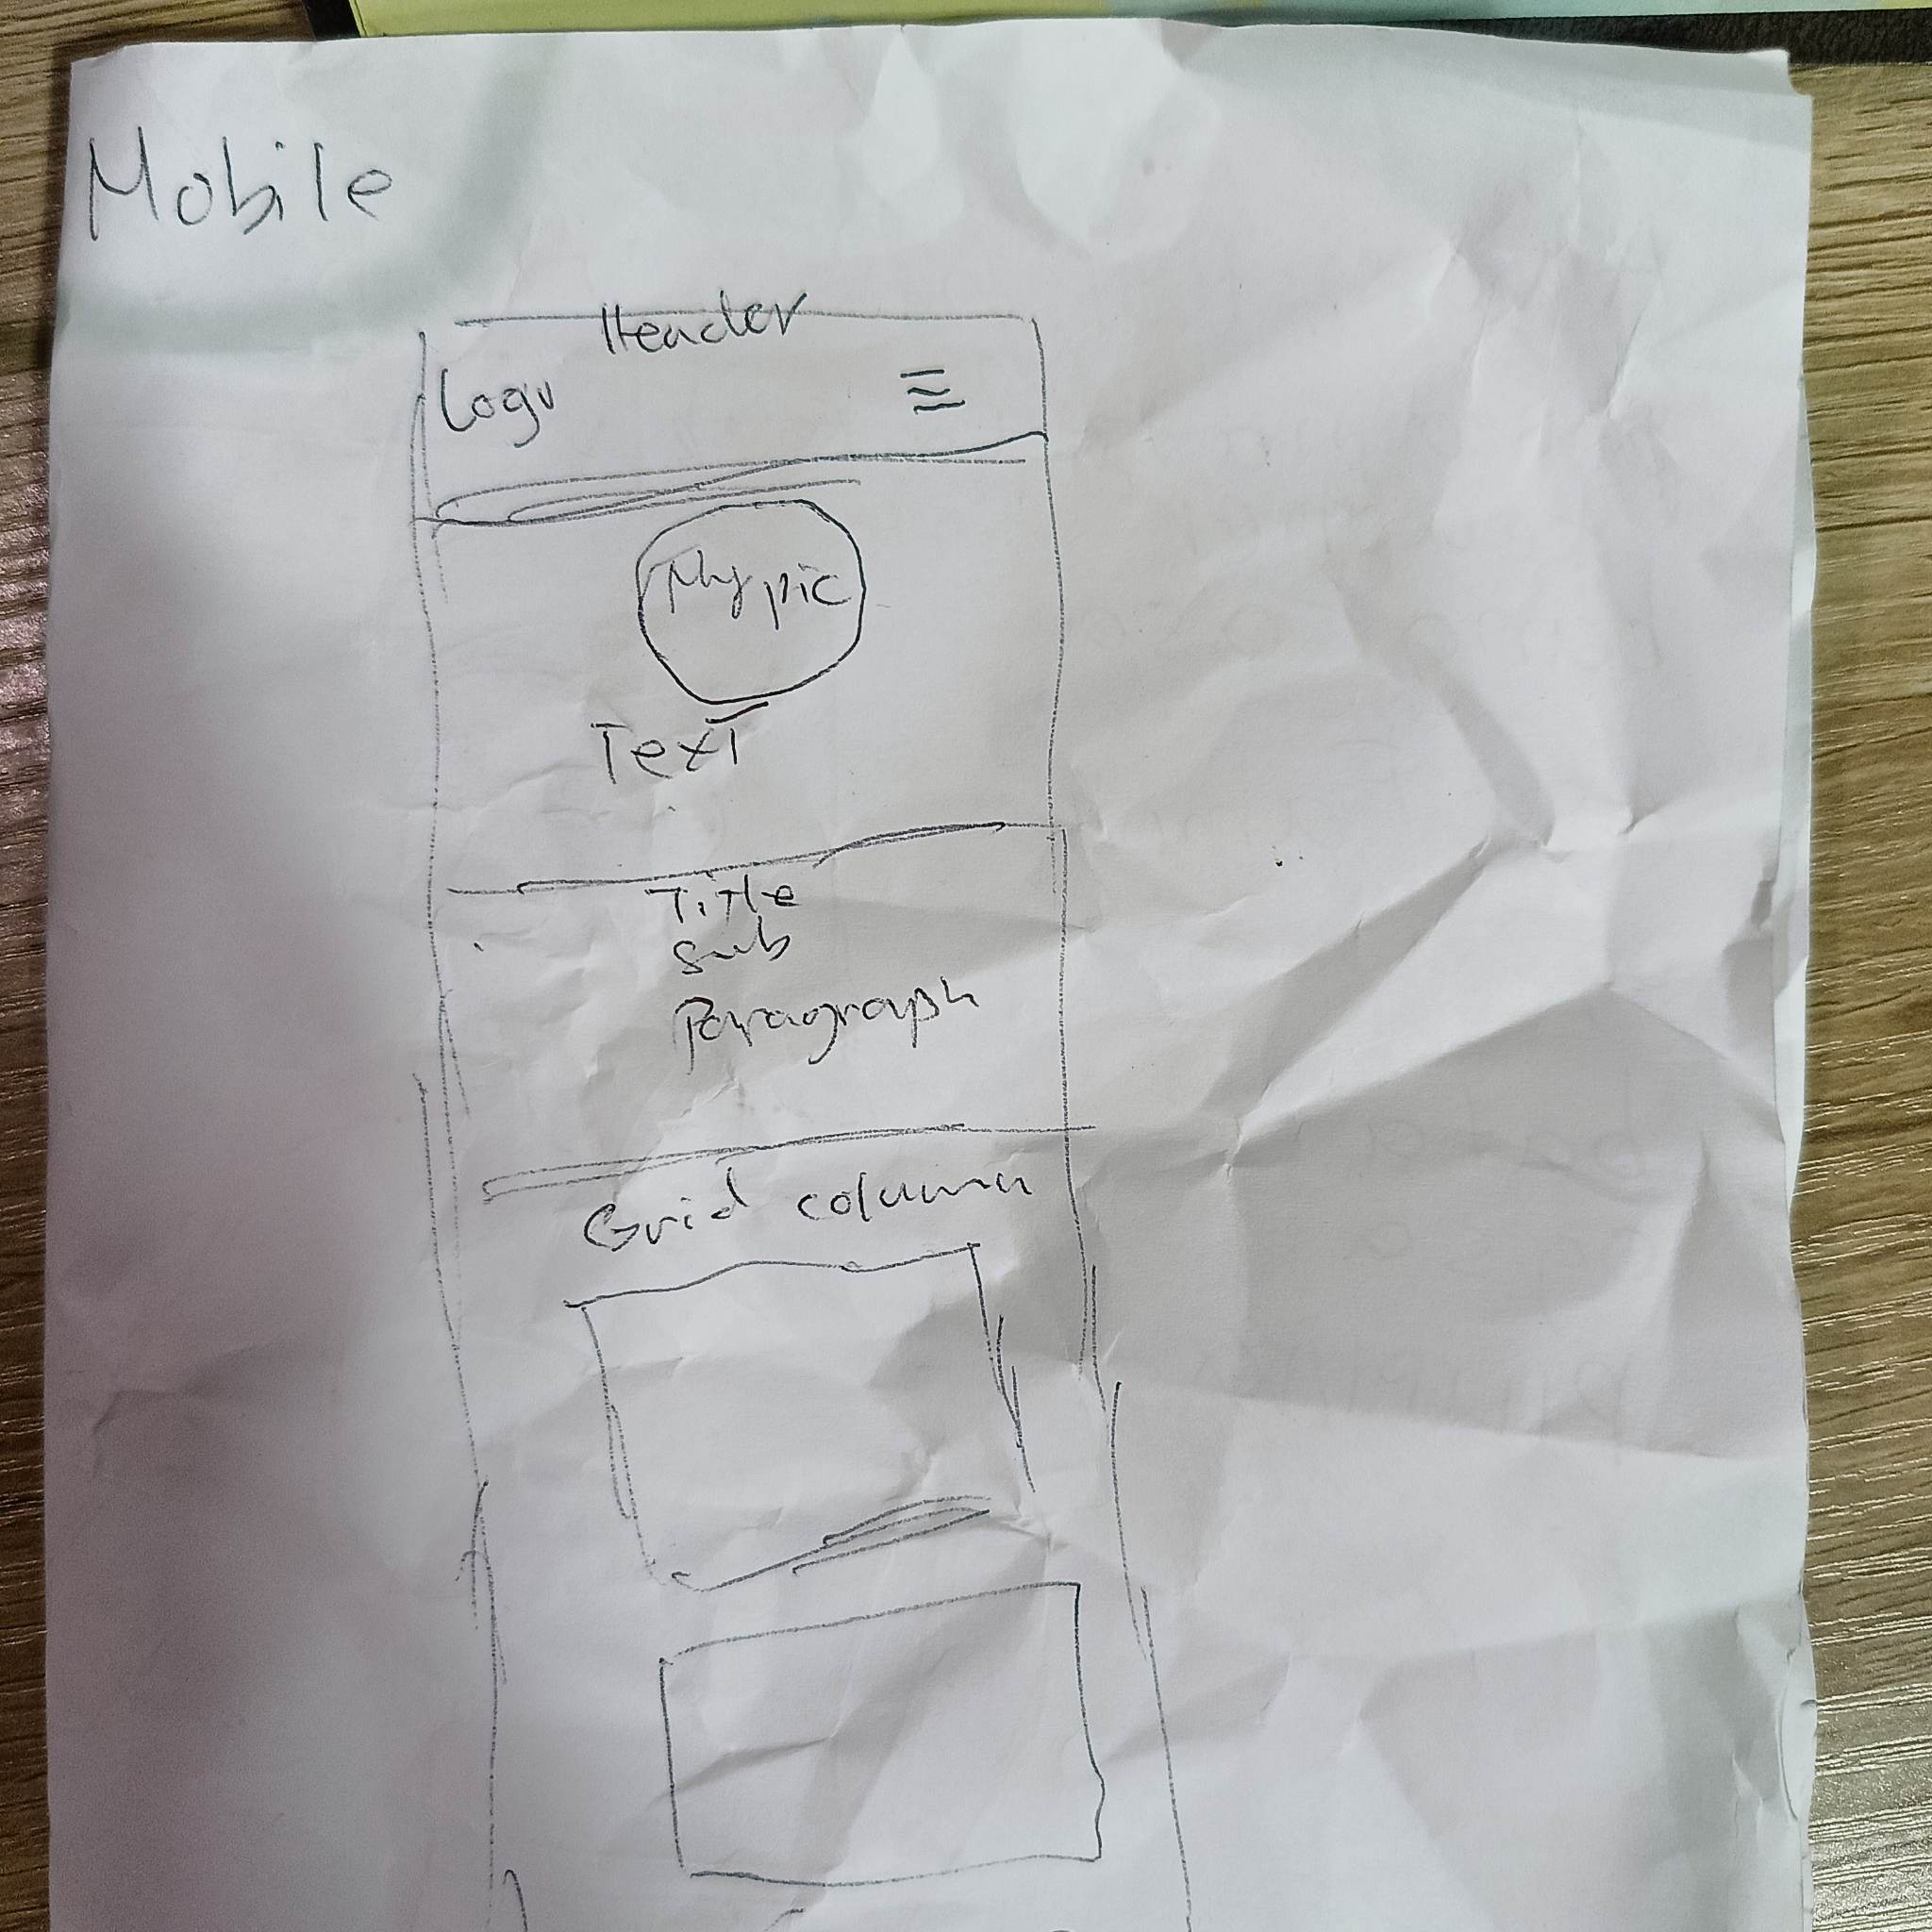 Mobile
Header
Logo
My pic
Text
Title
Sub
Paragraph
Grid column